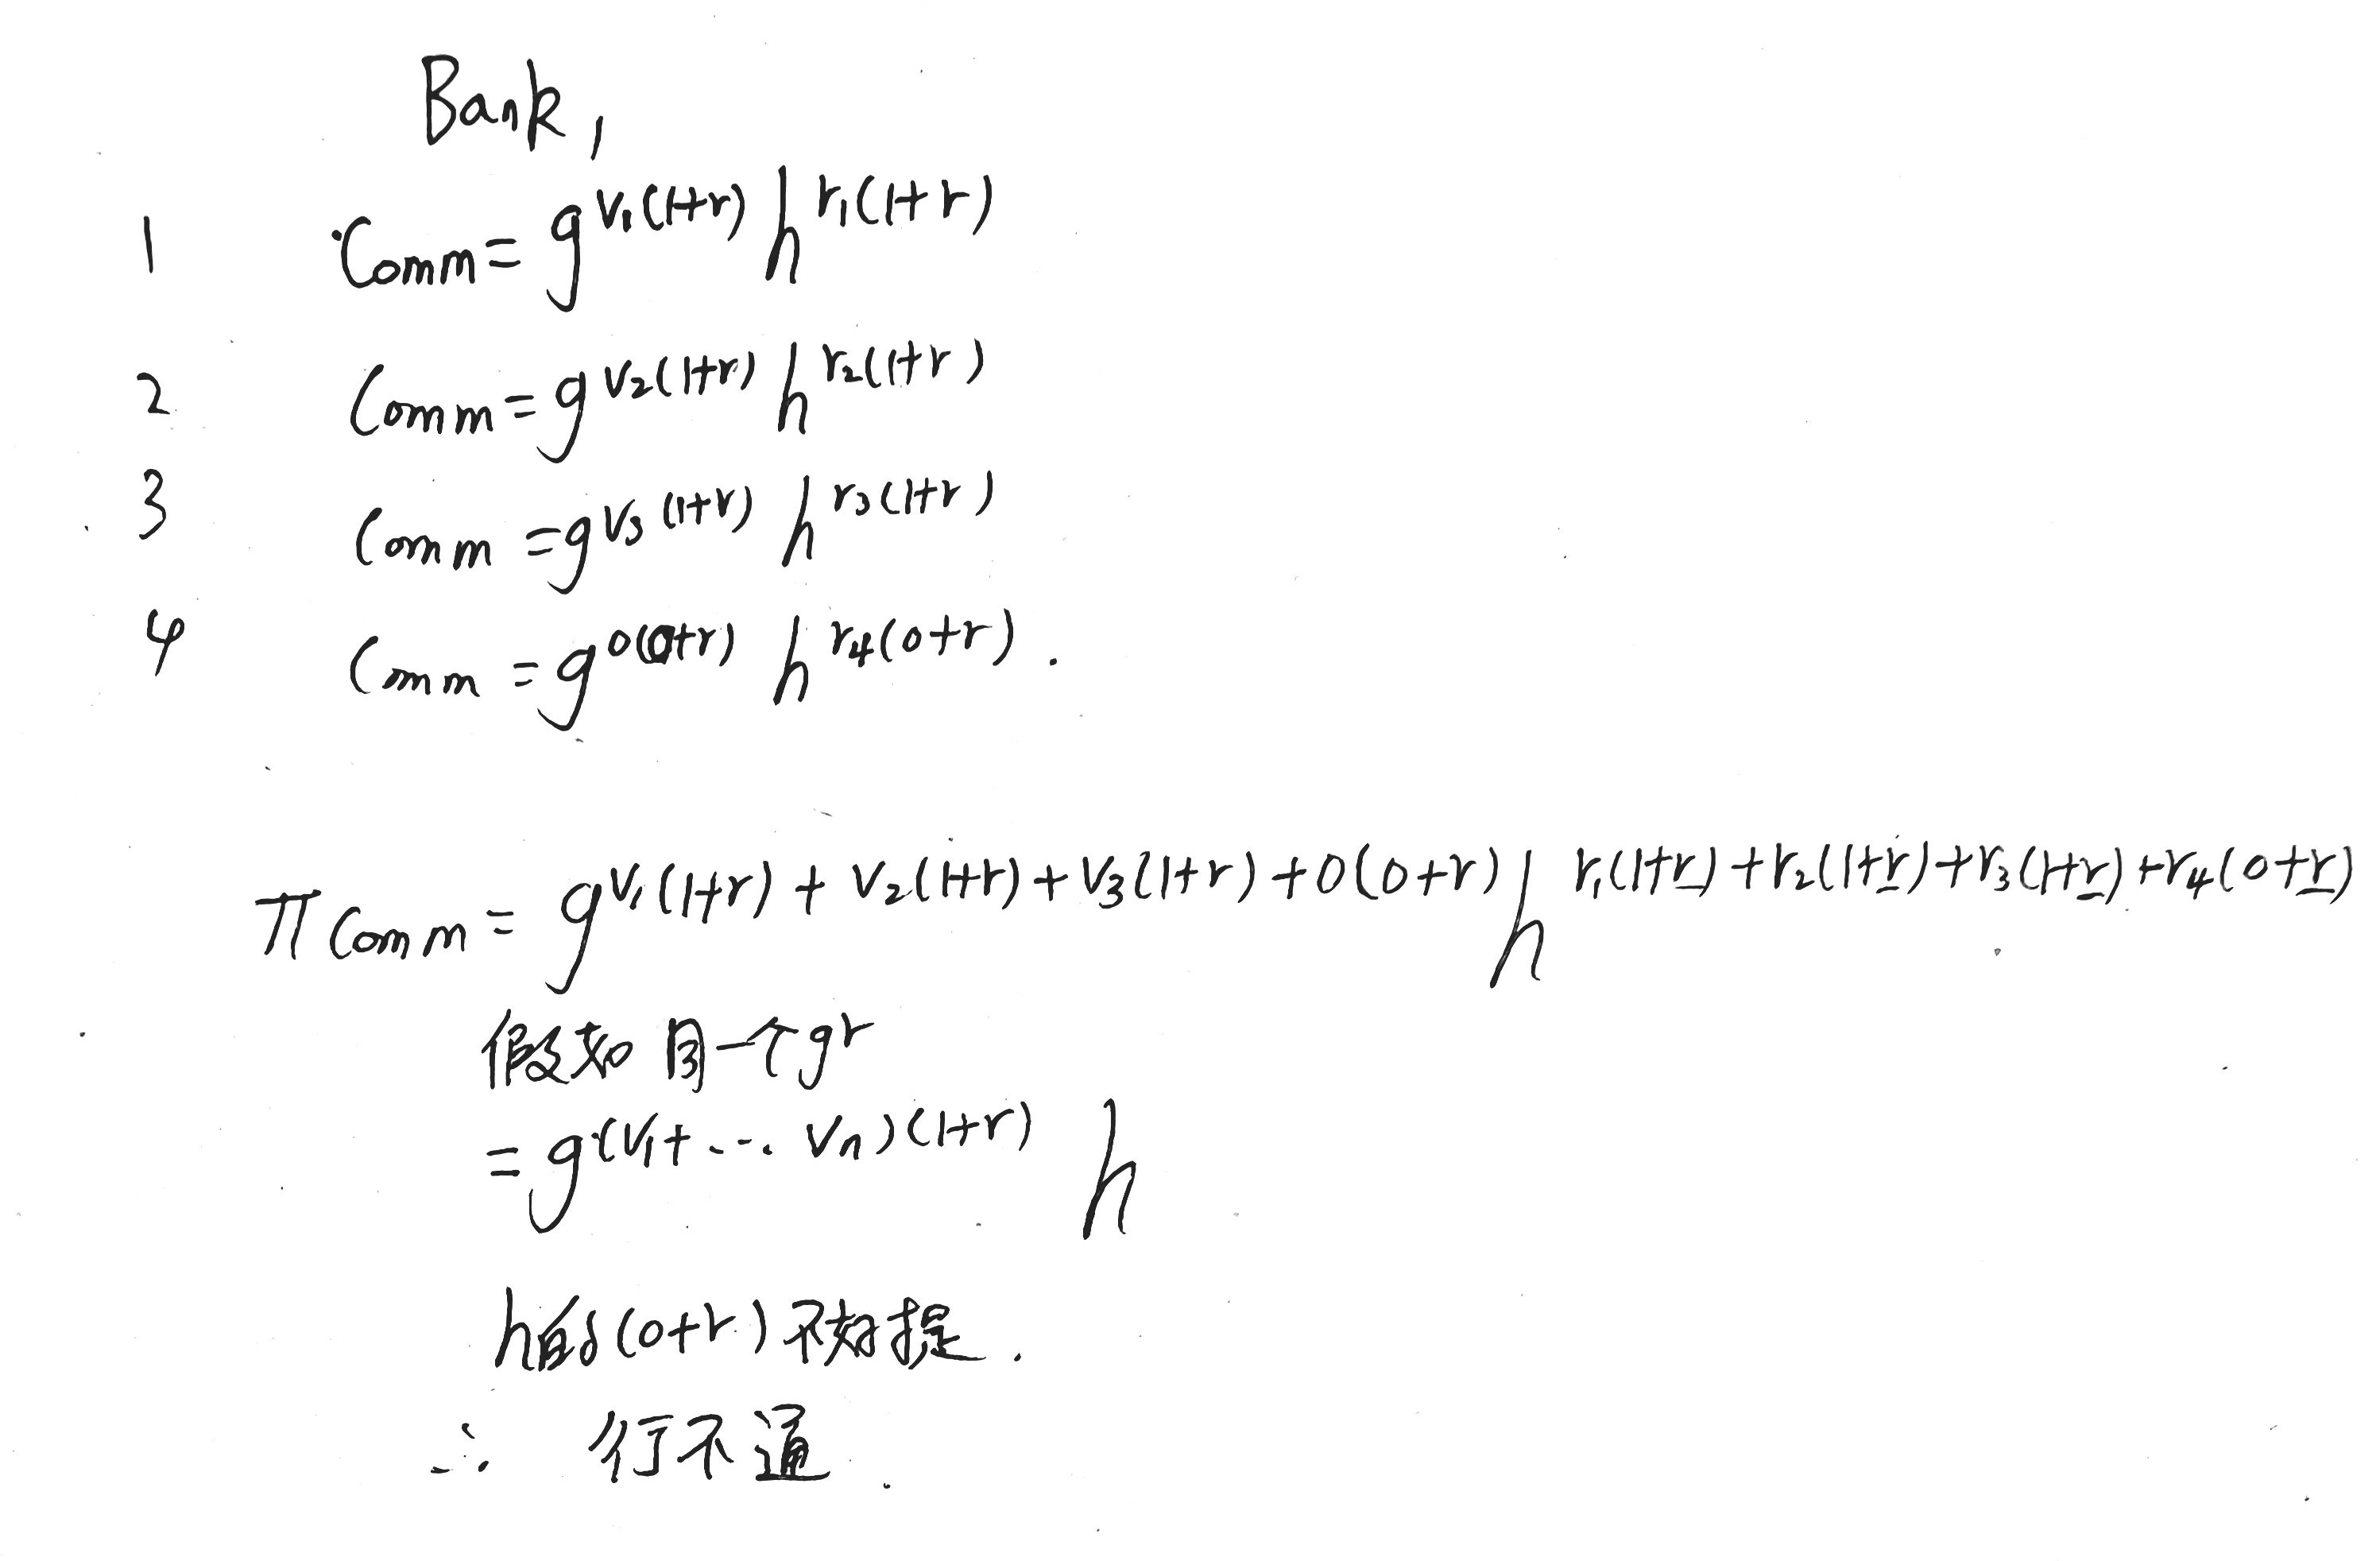 Bank,
1 Comm = g^{v₁(1+r)} h^{r₁(1+r)}
2 Comm = g^{v₂(1+r)} h^{r₂(1+r)}
3 Comm = g^{v₃(1+r)} h^{r₃(1+r)}
4 Comm = g^{0(0+r)} h^{r₄(0+r)}.
π Comm = g^{v₁(1+r)+v₂(1+r)+v₃(1+r)+0(0+r)} h^{r₁(1+r)+r₂(1+r)+r₃(1+r)+r₄(0+r)}
假如同一个gr
= g^{(v₁+...vₙ)(1+r)} h
h的(0+r)不好提.
∴ 行不通.